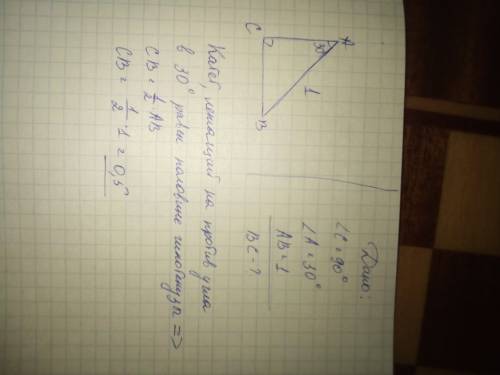 Дано:
∠C = 90°
∠A = 30°
AB = 1
BC - ?
A
30°
1
C
B
Катет, лежащий на против угла
в 30° равен половине гипотенузы =>
CB = 1/2 AB
CB = 1/2 · 1 = 0,5